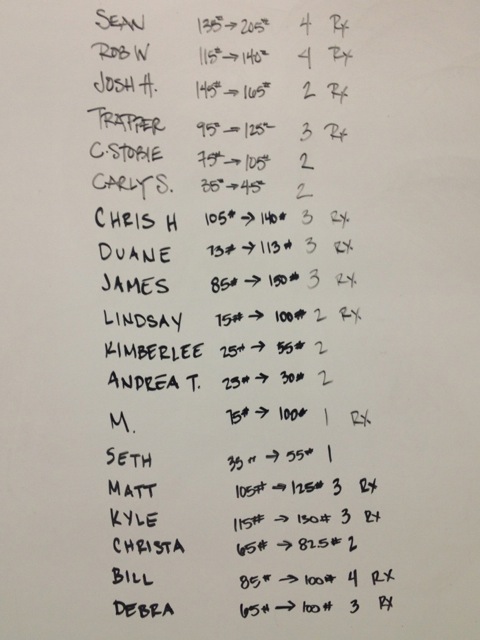 SEAN 135# → 205# 4 Rx
ROB W 115# → 140# 4 Rx
JOSH H. 145# → 165# 2 Rx
TRAPPER 95# → 125# 3 Rx
C. STOBIE 75# → 105# 2
CARLY S. 35# → 45# 2
CHRIS H 105# → 140# 3 Rx
DUANE 73# → 113# 3 Rx
JAMES 85# → 150# 3 Rx
LINDSAY 75# → 100# 2 Rx
KIMBERLEE 25# → 55# 2
ANDREA T. 25# → 30# 2
M. 75# → 100# 1 Rx
SETH 35# → 55# 1
MATT 105# → 125# 3 Rx
KYLE 115# → 130# 3 Rx
CHRISTA 65# → 82.5# 2
BILL 85# → 100# 4 Rx
DEBRA 65# → 100# 3 Rx